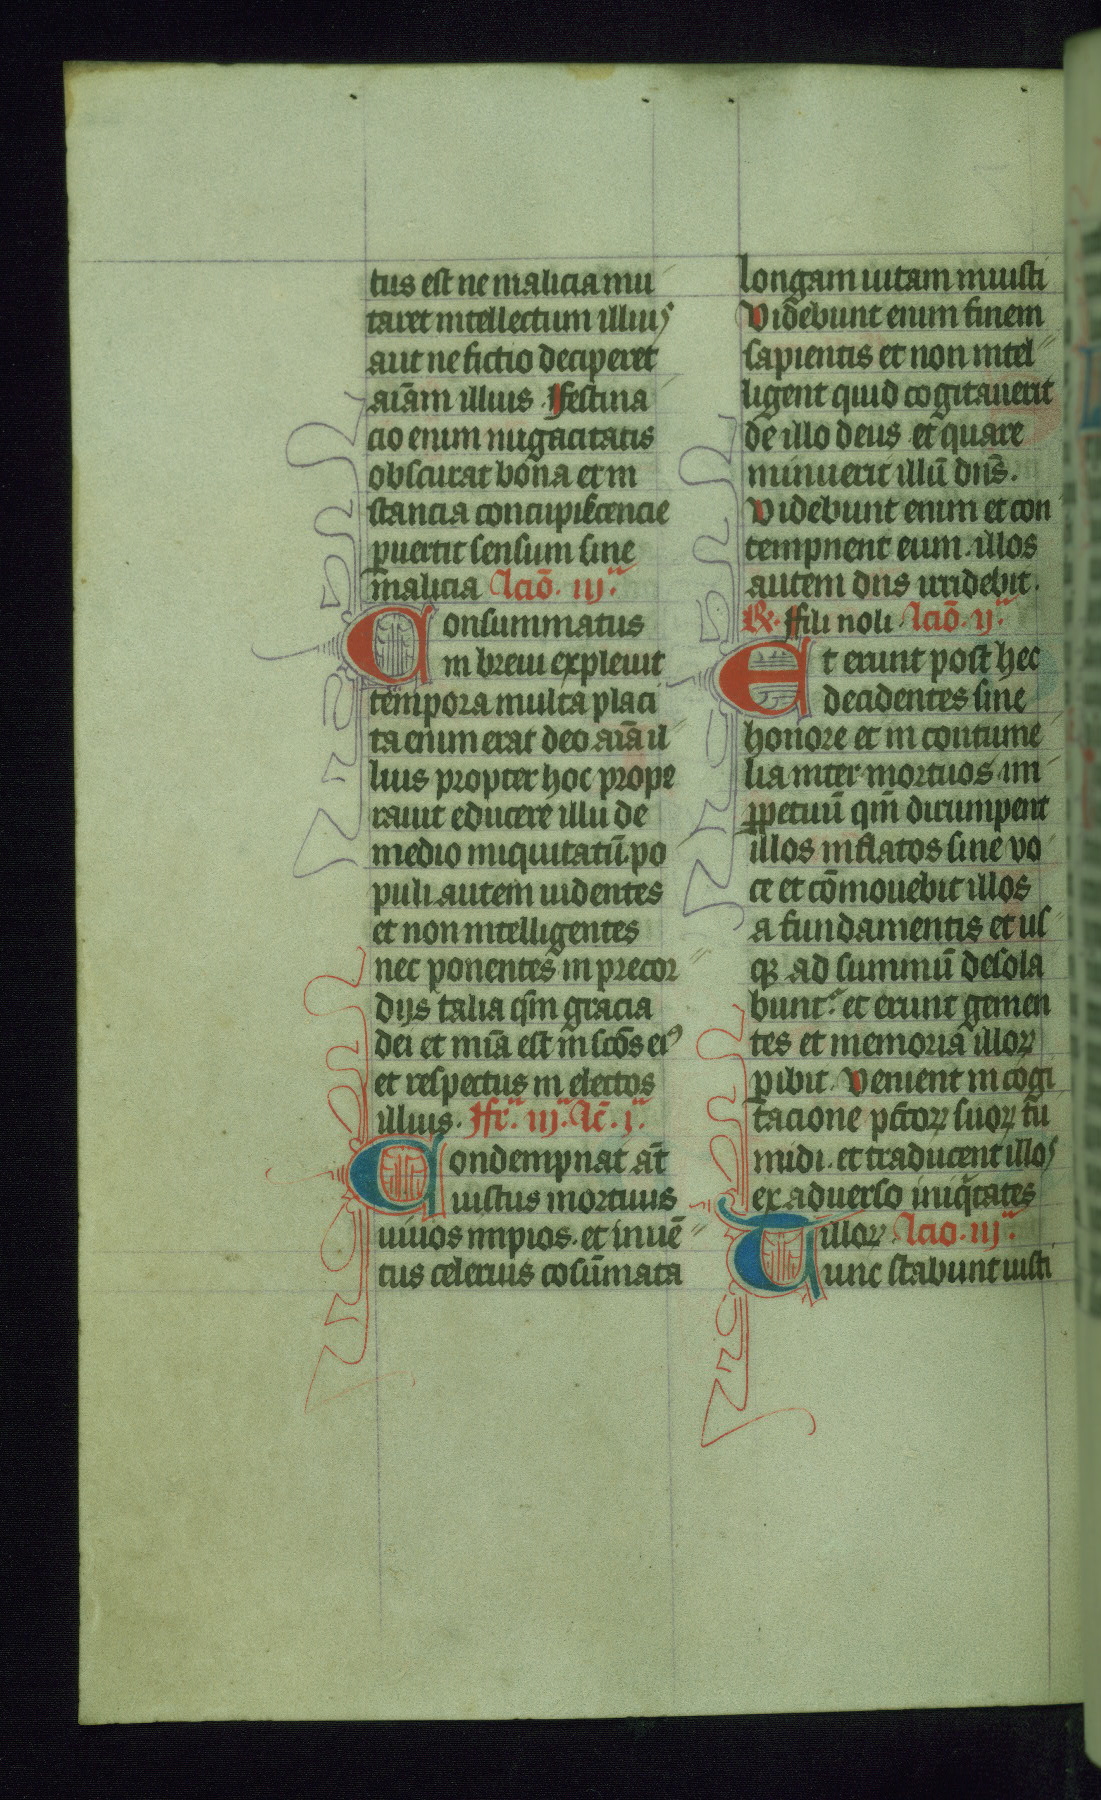 tus est ne malicia mu
taret intellectum illius
aut ne fictio deciperet
aiām illius. Ffestina
cio enim nugacitatis
obscurat bona et in
stancia concupiscencie
ꝑuertit sensum sine
malicia Lcīo. iij.ᵃ
Consummatus
in breui expleuit
tempora multa placi
ta enim erat deo aīa il
lius propter hoc prope
rauit educere illū de
medio iniquitatū. po
puli autem uidentes
et non intelligentes
nec ponentes in precor
dijs talia qm̄ gracia
dei et mīa est in scōs eiꝰ
et respectus in electos
illius. Ffr̄. iij.ᵃ Lc̄. j.ᵃ
Condempnat aūt
iustus mortuus
uiuos impios. et iuuē
tus celerius cōsūmata
longam uitam iniusti
Videbunt enim finem
sapientis et non intel
ligent quid cogitauerit
de illo deus et quare
minuerit illū dn̄s.
Videbunt enim et con
tempnent eum. illos
autem dn̄s irridebit.
℞. Ffili noli. Lcīo. ij.ᵃ
Et erunt post hec
decidentes sine
honore et in contume
lia inter mortuos im
ꝑpetuū qm̄ dirumpent
illos inflatos sine vo
ce et cōmouebit illos
a fundamentis et us
qꝫ ad summū desola
bunt.ʳ et erunt gemen
tes et memoria illoꝝ
ꝑibit. Venient in cogi
tacione pc̄toꝝ suoꝝ ti
midi. et traducent illos
ex aduerso iniq̄tates
illoꝝ Lcīo. iij.ᵃ
Tunc stabunt iusti